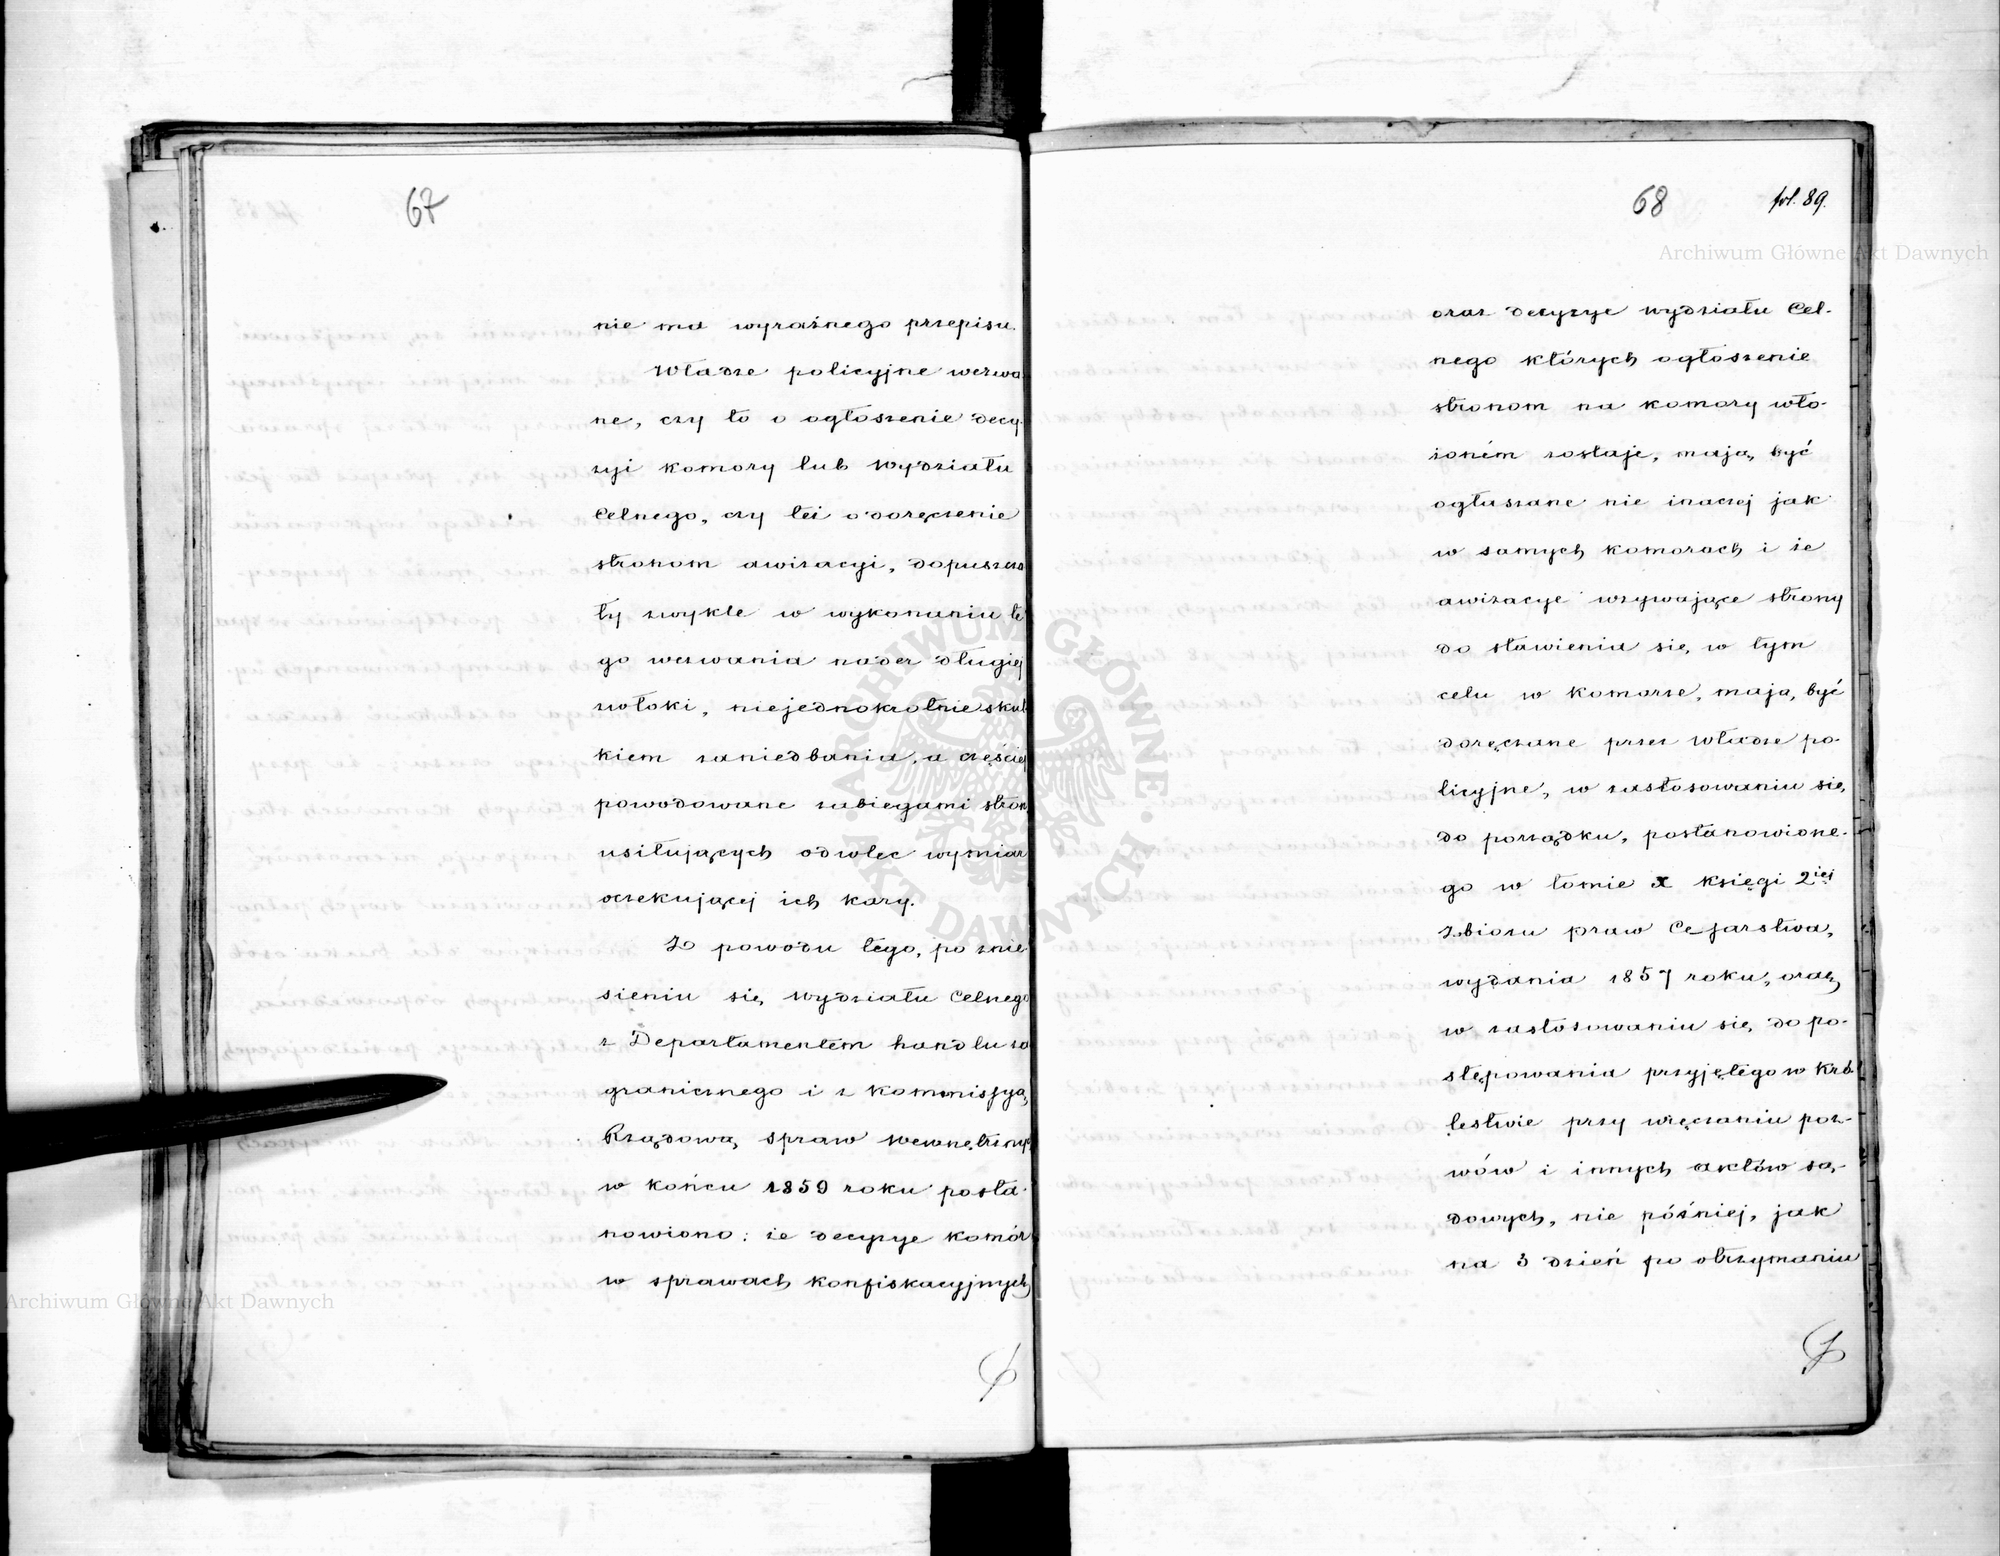 67
nie ma wyraźnego przepisu.
Władze policyjne wezwa-
ne, czy to o ogłoszenie decy-
zyi komory lub Wydziału
Celnego, czy też o doręczenie
stronom awizacyi, dopuszcza
ły zwykle w wykonaniu te
go wezwania nader długiej
zwłoki, niejednokrotnie skut
kiem zaniedbania, a częściej
powodowane zabiegami stron
usiłujących odwlec wymiar
oczekującej ich kary.
Z powodu tego, po znie
sieniu się, wydziału Celnego
z Departamentem handlu za
granicznego i z Kommissyą,
Rządową, spraw Wewnętrznych
w końcu 1859 roku posta-
nowiono: że decyzye komór
w sprawach konfiskacyjnych
68 fol. 89.
oraz decyzye wydziału Cel-
nego których ogłoszenie
stronom na komory wło-
żoném zostaje, mają, być
ogłaszane nie inaczej jak
w samych komorach i że
awizacye wzywające strony
do stawienia się, w tym
celu w komorze, mają, być
doręczane przez Władze po-
licyjne, w zastosowaniu się,
do porządku, postanowione-
go w tomie X księgi 2iéj
Zbioru praw Cesarstwa,
wydania 1857 roku, oraz
w zastosowaniu się, do po-
stępowania przyjętego w Kró
lestwie przy wręczaniu poz-
wów i innych aktów są-
dowych, nie później, jak
na 3 dzień po otrzymaniu
Archiwum Główne Akt Dawnych
ARCHIWUM GŁÓWNE AKT DAWNYCH
Archiwum Główne Akt Dawnych